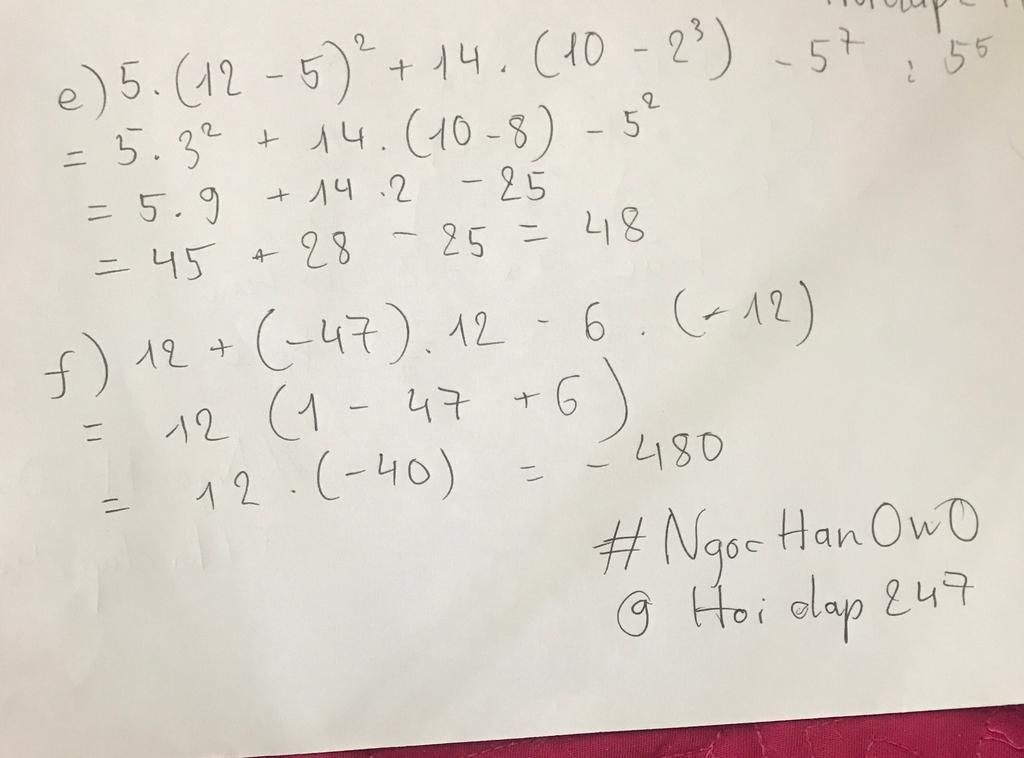 e) 5.(12 - 5)² + 14. (10 - 2³) - 5⁷ : 5⁵
= 5. 3² + 14. (10-8) - 5²
= 5. 9 + 14 .2 - 25
= 45 + 28 - 25 = 48
f) 12 + (-47). 12 - 6 . (-12)
= 12 (1 - 47 + 6)
= 12 . (-40) = - 480
#Ngoc Han OwO
@ Hoi dap 247